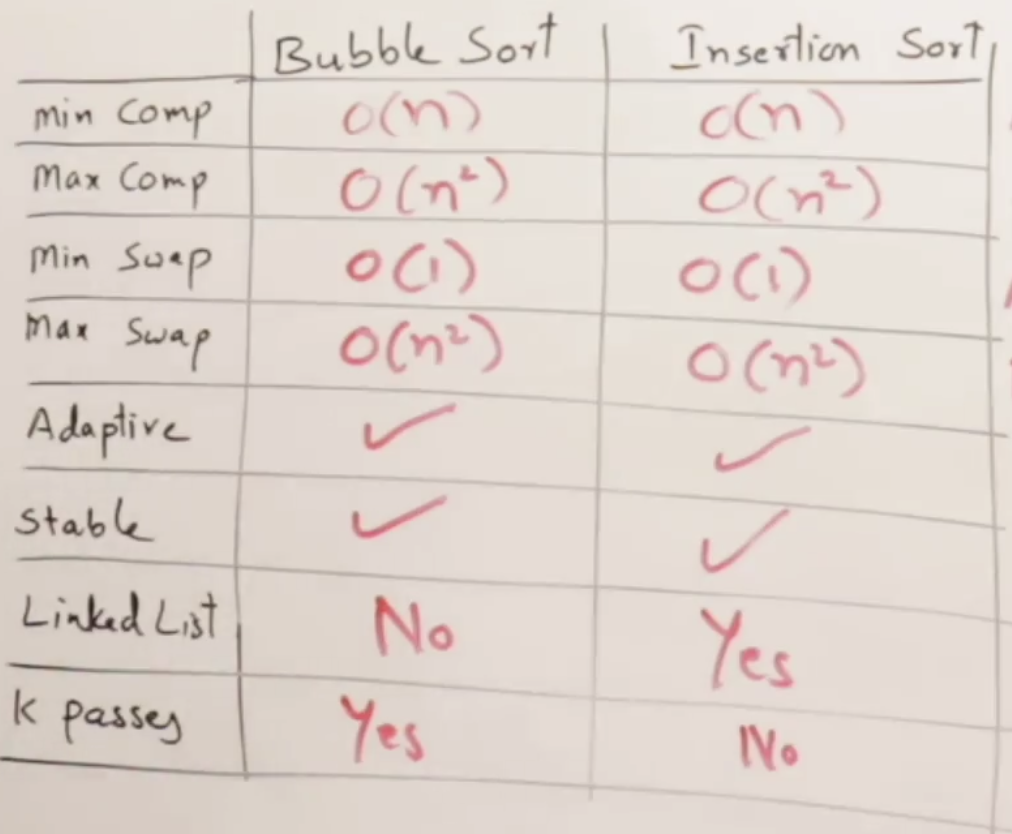 Bubble Sort Insertion Sort
Min Comp O(n) O(n)
Max Comp O(n²) O(n²)
Min Swap O(1) O(1)
Max Swap O(n²) O(n²)
Adaptive ✓ ✓
Stable ✓ ✓
Linked List No Yes
K passes Yes No